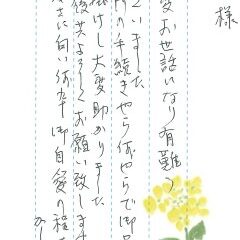 様
変お世話になり有難う
いました
の手続きやら何やらで御
掛けし大変助かりました
後共よろしくお願い致しま
さに向い何卒御自愛の程